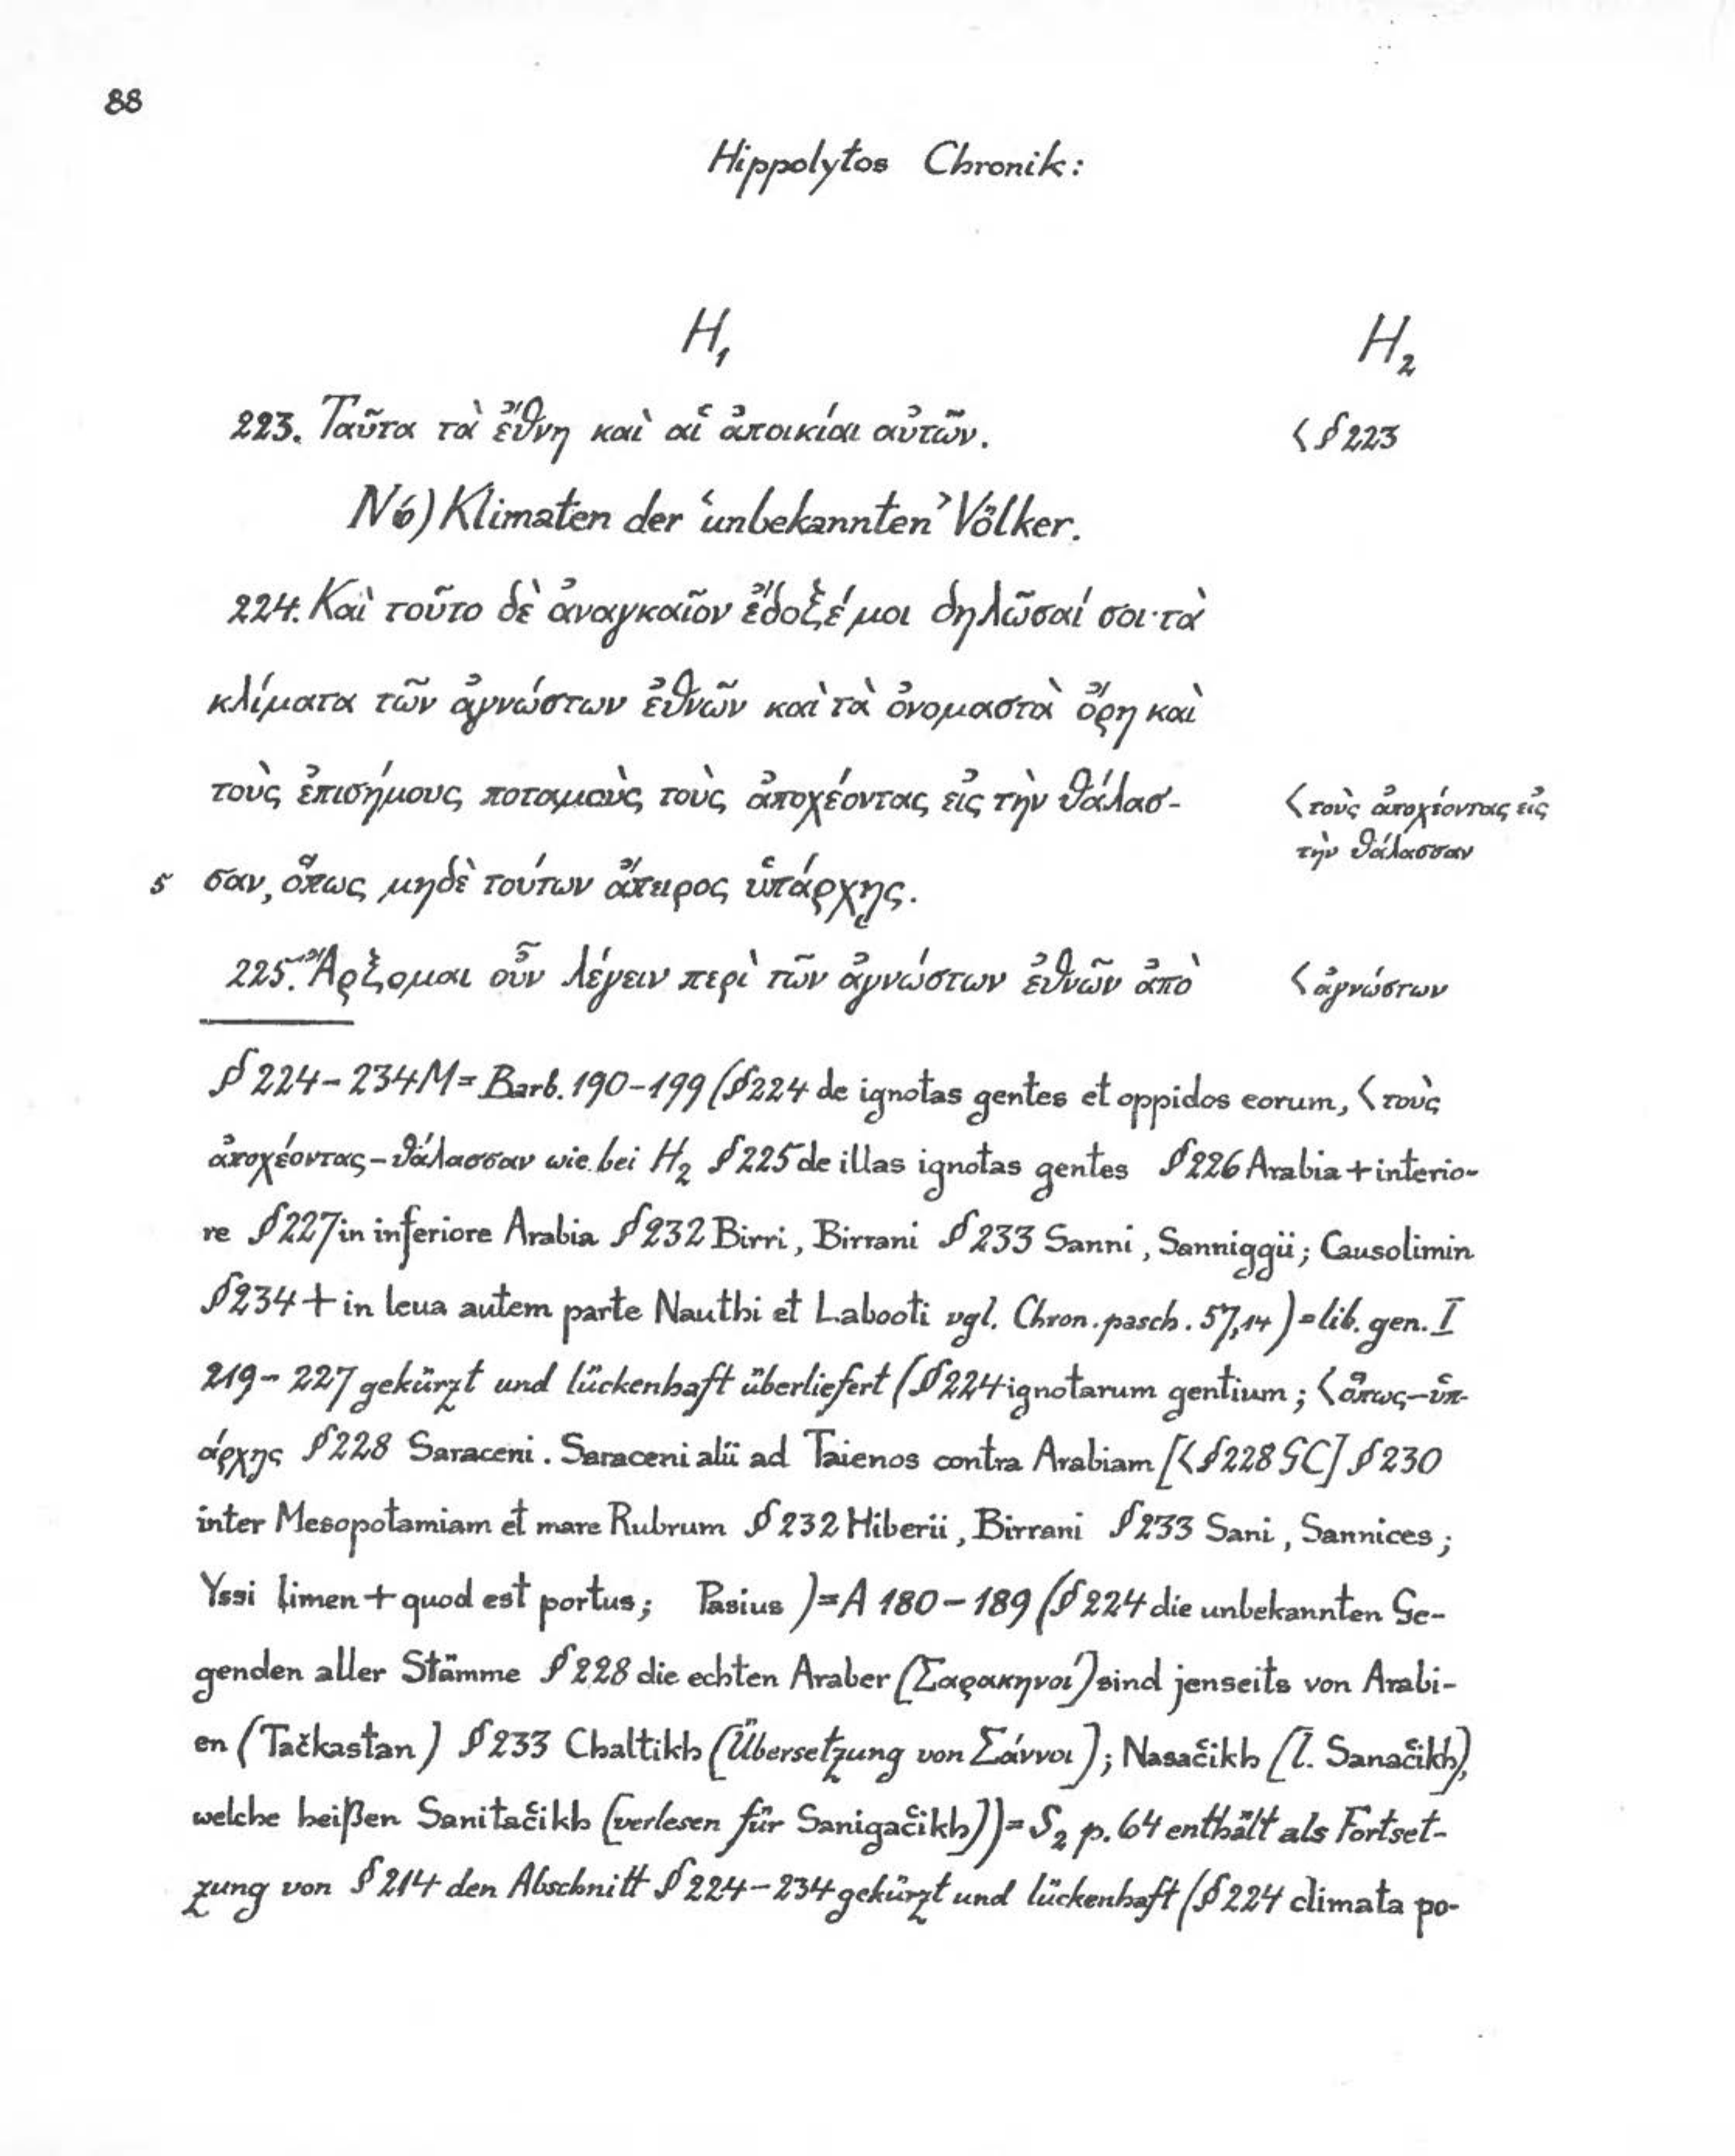 88
Hippolytos Chronik:
H₁ H₂
223. Ταῦτα τὰ ἔθνη καὶ αἱ ἀποικίαι αὐτῶν. < § 223
N6) Klimaten der ‹unbekannten› Völker.
224. Καὶ τοῦτο δὲ ἀναγκαῖον ἔδοξέ μοι δηλῶσαί σοι· τὰ
κλίματα τῶν ἀγνώστων ἐθνῶν καὶ τὰ ὀνομαστὰ ὄρη καὶ
τοὺς ἐπισήμους ποταμοὺς τοὺς ἀποχέοντας εἰς τὴν θάλασ- < τοὺς ἀποχέοντας εἰς
τὴν θάλασσαν
5 σαν, ὅπως μηδὲ τούτων ἄπειρος ὑπάρχῃς.
225. Ἄρξομαι οὖν λέγειν περὶ τῶν ἀγνώστων ἐθνῶν ἀπὸ < ἀγνώστων
§ 224-234 M = Barb. 190-199 (§ 224 de ignotas gentes et oppidos eorum, < τοὺς
ἀποχέοντας – θάλασσαν wie bei H₂ § 225 de illas ignotas gentes § 226 Arabia + interio-
re § 227 in inferiore Arabia § 232 Birri, Birrani § 233 Sanni, Sanniggii; Causolimin
§ 234 + in leua autem parte Nauthi et Labooti vgl. Chron. pasch. 57,14) = lib. gen. I
219-227 gekürzt und lückenhaft überliefert (§ 224 ignotarum gentium; < ὅπως – ὑπ-
άρχῃς § 228 Saraceni. Saraceni alii ad Taienos contra Arabiam [< § 228 GC] § 230
inter Mesopotamiam et mare Rubrum § 232 Hiberii, Birrani § 233 Sani, Sannices;
Yssi limen + quod est portus; Pasius) = A 180-189 (§ 224 die unbekannten Ge-
genden aller Stämme § 228 die echten Araber (Σαρακηνοί) sind jenseits von Arabi-
en (Tačkastan) § 233 Chaltikh (Übersetzung von Σάννοι); Nasačikh (l. Sanačikh),
welche heißen Sanitačikh (verlesen für Sanigačikh)) = S₂ p. 64 enthält als Fortset-
zung von § 214 den Abschnitt § 224-234 gekürzt und lückenhaft (§ 224 climata po-